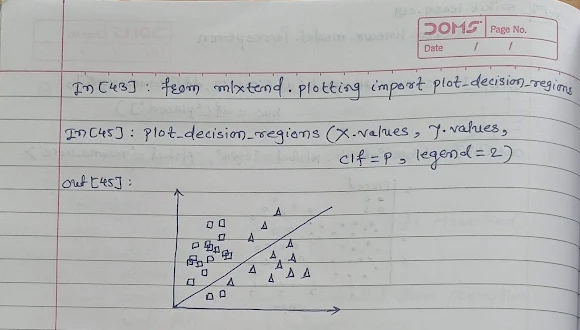 DOMS Page No.
Date / /
In [43] : from mlxtend.plotting import plot_decision_regions
In [45] : plot_decision_regions (X.values, y.values,
clf = P, legend = 2)
out [45] :